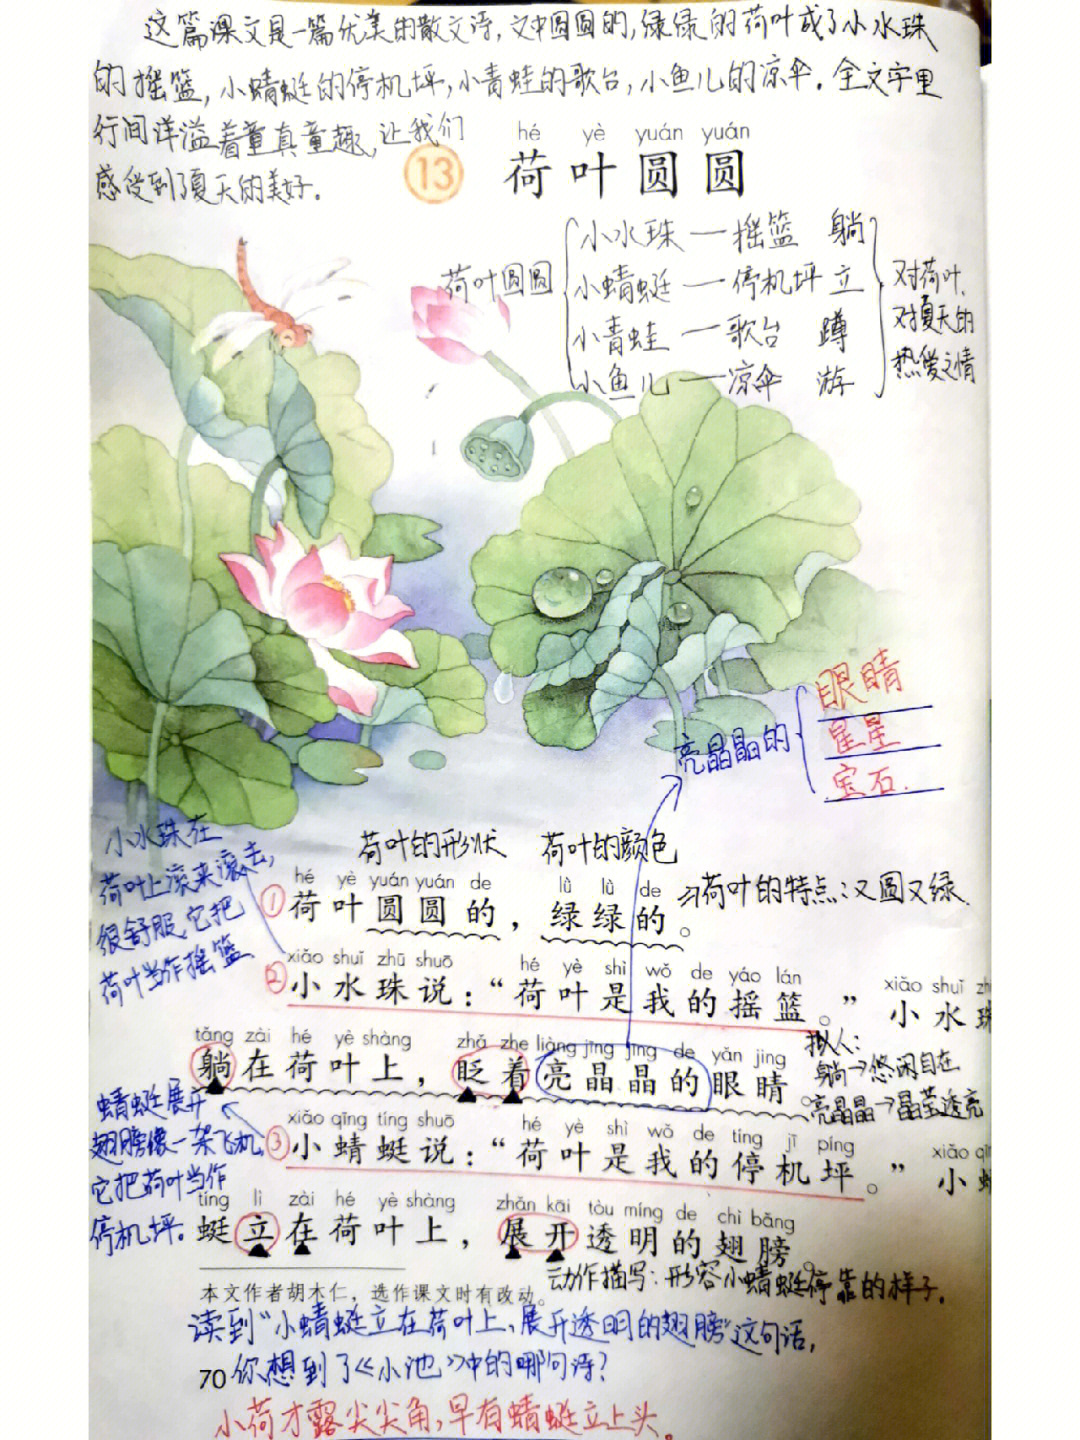 这篇课文是一篇优美的散文诗，文中圆圆的，绿绿的荷叶成了小水珠
的摇篮，小蜻蜓的停机坪，小青蛙的歌台，小鱼儿的凉伞。全文字里
行间洋溢着童真童趣，让我们
感受到了夏天的美好。
hé yè yuán yuán
13 荷叶圆圆
荷叶圆圆
小水珠—摇篮 躺
小蜻蜓—停机坪 立
小青蛙—歌台 蹲
小鱼儿—凉伞 游
对荷叶、
对夏天的
热爱之情
亮晶晶的
眼睛
星星
宝石
小水珠在
荷叶上滚来滚去，
很舒服，它把
荷叶当作摇篮
荷叶的形状 荷叶的颜色
hé yè yuán yuán de lǜ lǜ de
①荷叶圆圆的，绿绿的。
荷叶的特点：又圆又绿
xiǎo shuǐ zhū shuō hé yè shì wǒ de yáo lán xiǎo shuǐ zh
②小水珠说：“荷叶是我的摇篮。” 小水珠
tǎng zài hé yè shàng zhǎ zhe liàng jīng jīng de yǎn jing
躺在荷叶上，眨着亮晶晶的眼睛。
拟人：
躺→悠闲自在
亮晶晶→晶莹透亮
蜻蜓展开
翅膀像一架飞机，
它把荷叶当作
停机坪。
xiǎo qīng tíng shuō hé yè shì wǒ de tíng jī píng xiǎo qīn
③小蜻蜓说：“荷叶是我的停机坪。” 小蜻
tíng lì zài hé yè shàng zhǎn kāi tòu míng de chì bǎng
蜓立在荷叶上，展开透明的翅膀。
动作描写：形容小蜻蜓停靠的样子。
本文作者胡木仁，选作课文时有改动。
读到“小蜻蜓立在荷叶上，展开透明的翅膀”这句话，
70 你想到了《小池》中的哪句诗？
小荷才露尖尖角，早有蜻蜓立上头。